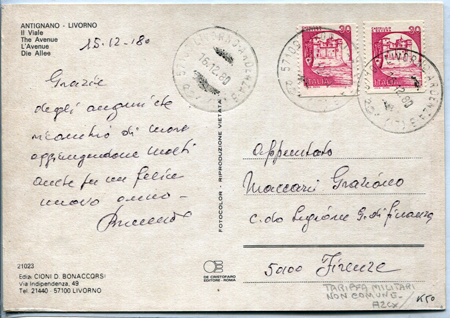 ANTIGNANO - LIVORNO
Il Viale
The Avenue
L'Avenue
Die Allee
15-12-'80
Grazie
degli auguri che
ricambio di cuore
aggiungendone molti
anche per un felice
nuovo anno.
21023
Ediz. CIONI D. BONACCORSI
Via Indipendenza, 49
Tel. 21440 - 57100 LIVORNO
FOTOCOLOR - RIPRODUZIONE VIETATA
DE CRISTOFARO
EDITORE - ROMA
57100
16.12.80
20
Italia
20
Italia
57100
Appuntato
Maccari Graziano
c.do Legione G. di finanza
5000 Firenze
TARIFFA MILITARI
NON COMUNE